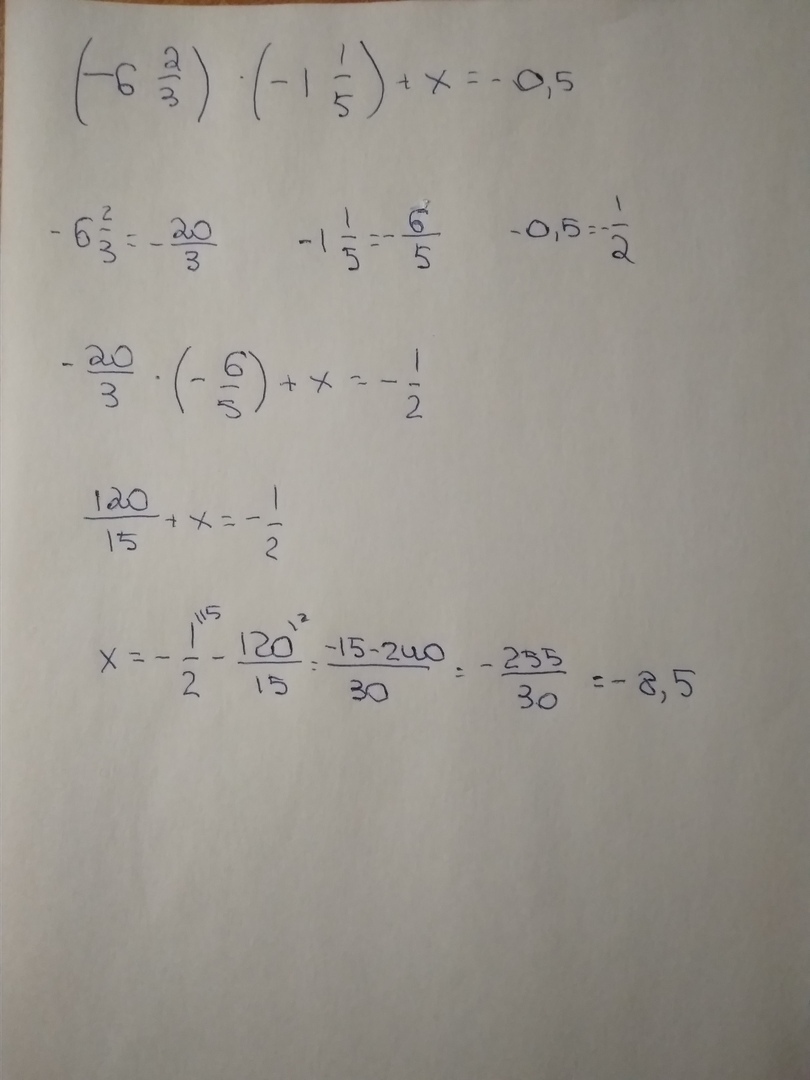 (-6 2/3) · (-1 1/5) + x = -0,5
-6 2/3 = -20/3    -1 1/5 = -6/5    -0,5 = -1/2
-20/3 · (-6/5) + x = -1/2
120/15 + x = -1/2
x = -1\15/2 - 120\2/15 = -15-240/30 = -255/30 = -8,5